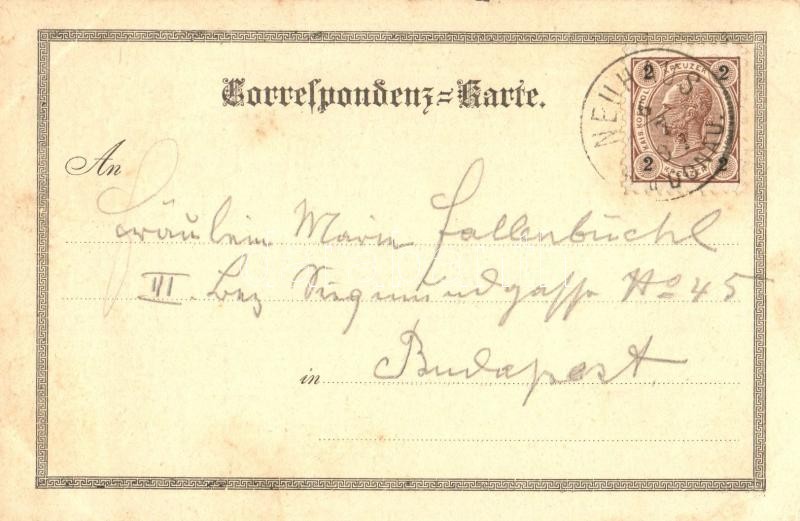 Correspondenz-Karte.
2 KREUZER 2
2 KREUZER 2
NEUHAUS
DONAU.
An
Fräulein Marie Fallenbüchl
III. Bez Siegmundgasse No 45
in Budapest